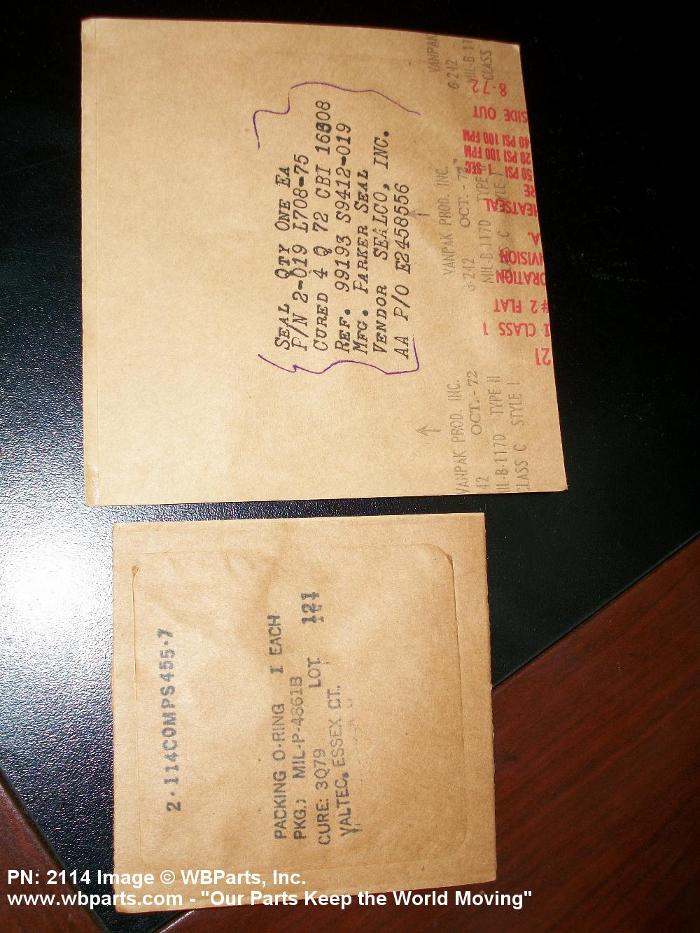 SEAL QTY ONE EA
P/N 2-019 L708-75
CURED 4 Q 72 CBI 16808
REF. 99193 S9412-019
MFG. PARKER SEAL
VENDOR SEALCO, INC.
AA P/O E2458556
VANPAK PROD. INC.
42 OCT.-72
MIL-B-117D TYPE II
CLASS C STYLE I
VANPAK PROD. INC.
G-242 OCT.-72
MIL-B-117D TYPE
CLASS C STYLE I
VANPAK
G-242
MIL-B-117
CLASS
8-72
SIDE OUT
40 PSI 100 FPM
20 PSI 100 FPM
50 PSI 1 SEC.
RE
HEATSEAL
A.
IVISION
ORATION
# 2 FLAT
1 CLASS 1
21
2-114COMPS455-7
PACKING O-RING 1 EACH
PKG.; MIL-P-4861B
CURE: 3Q79 LOT 121
VALTEC. ESSEX CT.
PN: 2114 Image © WBParts, Inc.
www.wbparts.com - "Our Parts Keep the World Moving"